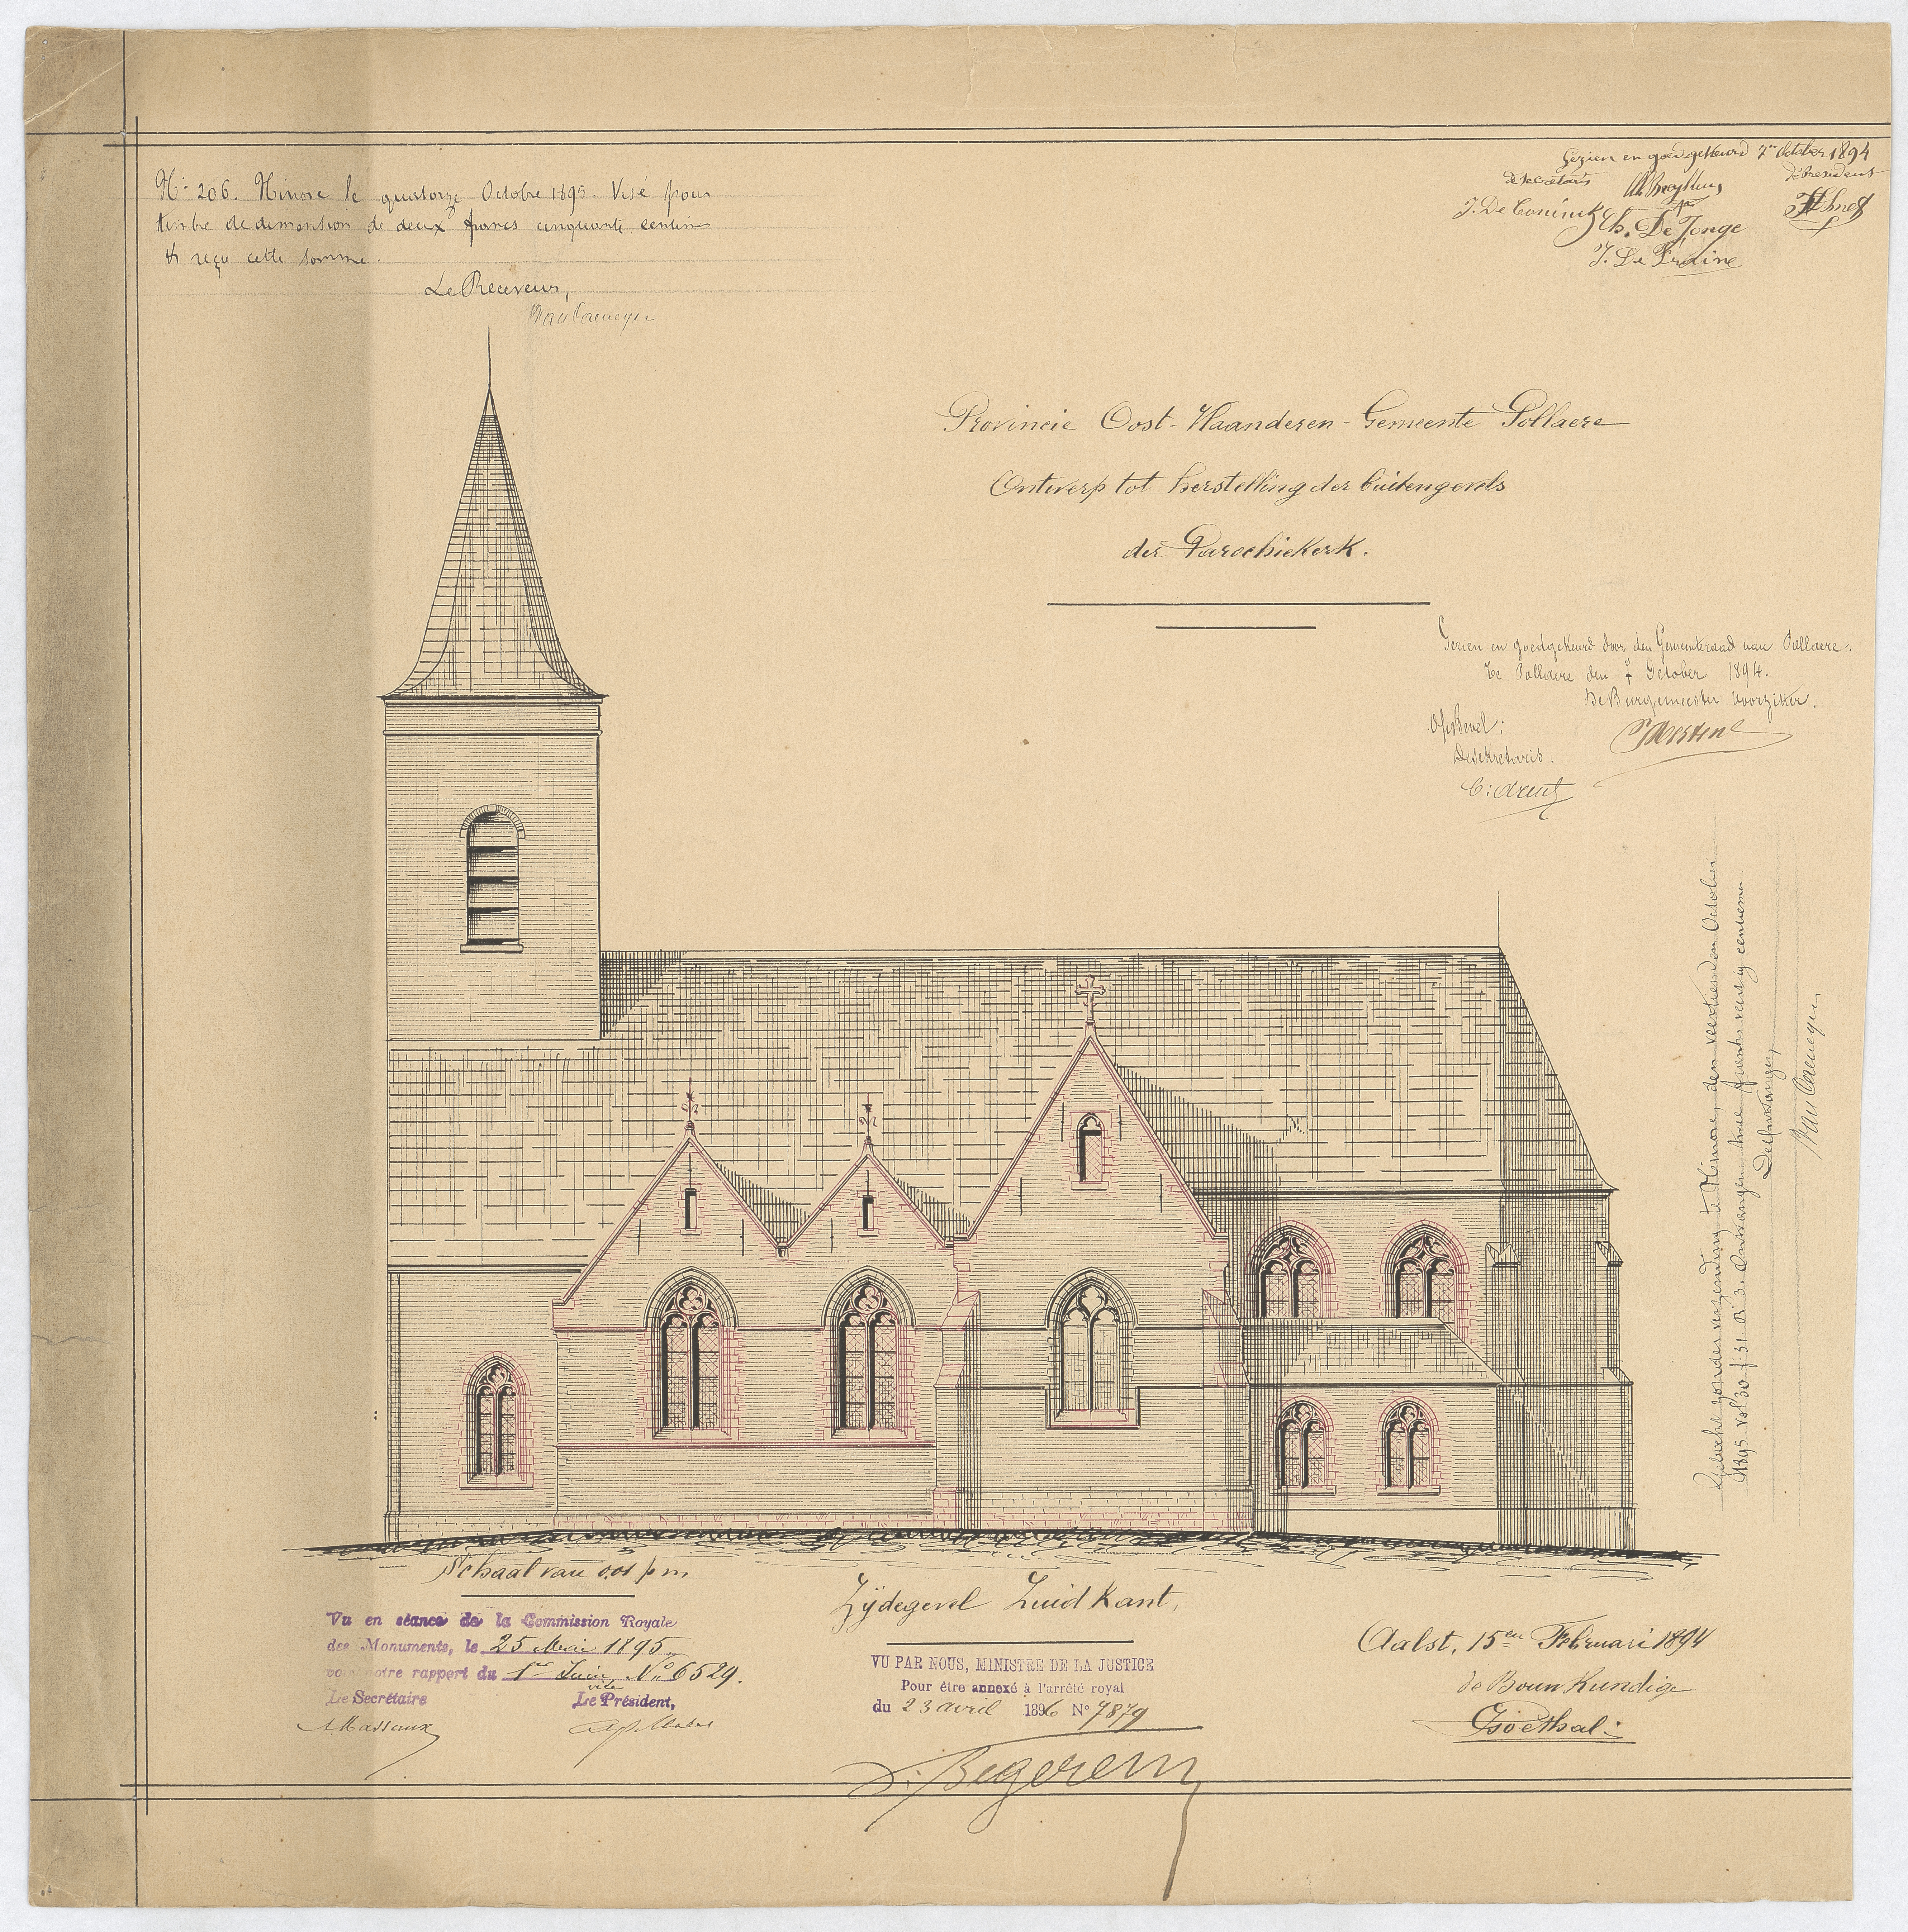 No 206. Ninove le quatorze Octobre 1895. Visé pour
timbre de dimension de deux francs cinquante centimes
et reçu cette somme.
Le Receveur,
Van Caenegem
Gezien en goedgekeurd 7en October 1894
de secretaris
de President
J. De Coninck
Ch. De Jonge
Provincie Oost-Vlaanderen - Gemeente Pollaere
Ontwerp tot herstelling der buitengevels
der Parochiekerk.
Gezien en goedgekeurd door den Gemeenteraad van Pollaere.
te Pollaere den 7 October 1894.
De Burgemeester Voorzitter.
Op Bevel:
De Sekretaris.
Geboekt zonder verzending te Ninove, den veertienden October
1895 vol 30 f 31 v 3. Ontvangen twee franks veertig centiemen
De Ontvanger,
Van Caenegem
Schaal van 0,01 p m.
Zijdegevel Zuid Kant,
Vu en séance de la Commission Royale
des Monuments, le 25 Mai 1895
voir notre rapport du 1er Juin No 6529.
Le Secrétaire
vice
Le Président,
A Massaux
VU PAR NOUS, MINISTRE DE LA JUSTICE
Pour être annexé à l'arrêté royal
du 23 avril 1896 No 7879
V. Begerem
Aalst, 15en Februari 1894
de Bouwkundige
Goethals